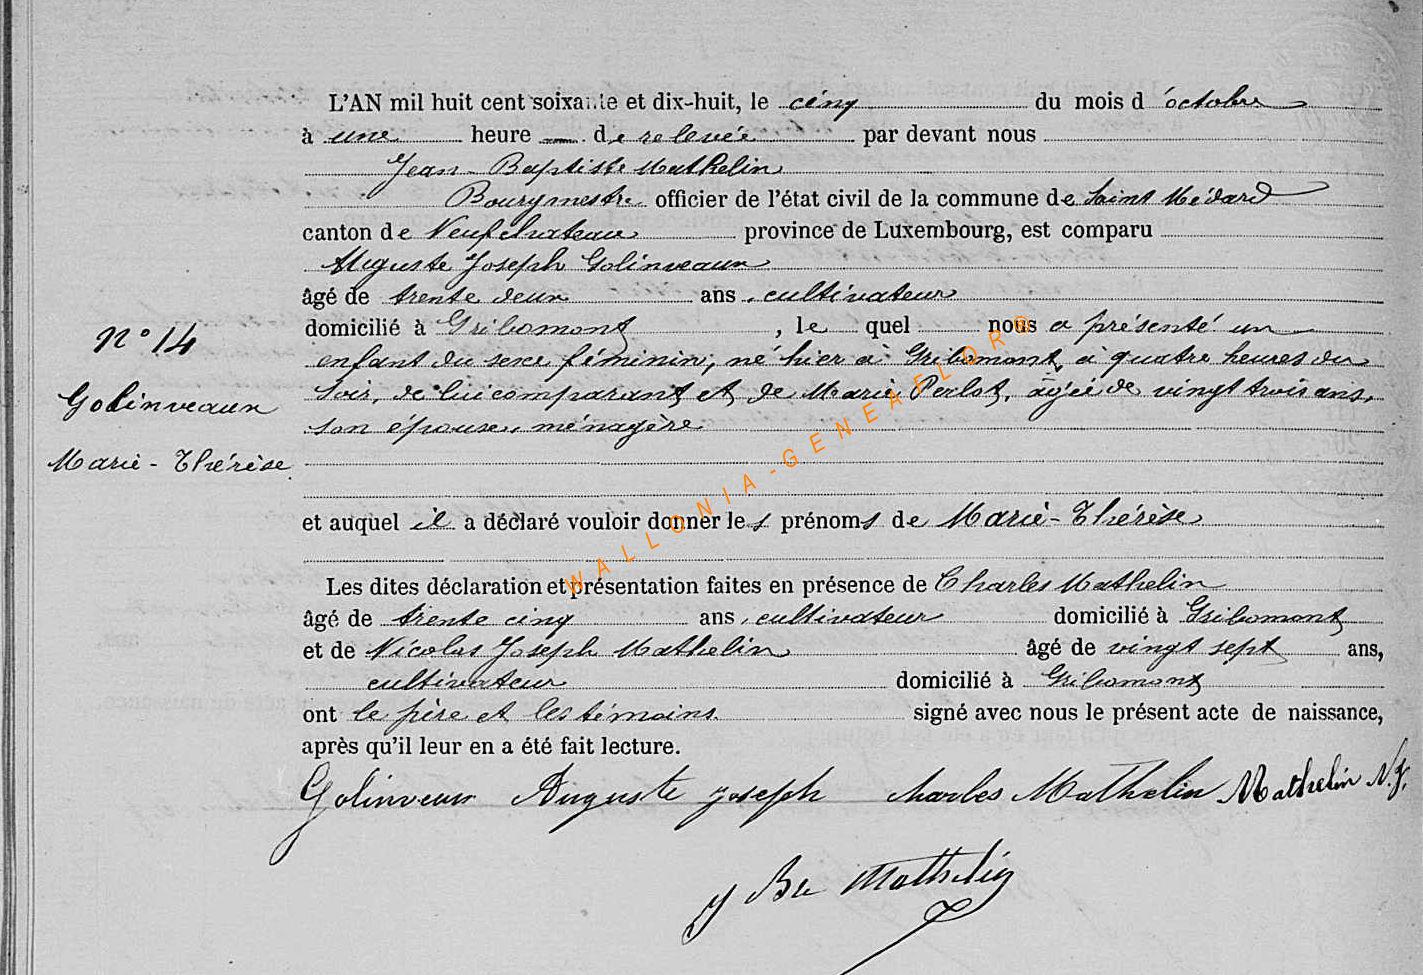 L'AN mil huit cent soixante et dix-huit, le cinq du mois d'octobre
à une heure de relevée par devant nous
Jean-Baptiste Mathelin
Bourgmestre officier de l'état civil de la commune de Saint Médard
canton de Neufchateau province de Luxembourg, est comparu
Auguste Joseph Golinveaux
âgé de trente deux ans, cultivateur
domicilié à Gribomont, le quel nous a présenté un
enfant du sexe féminin, né hier à Gribomont, à quatre heures du
soir, de lui comparant et de Marie Perlot, âgée de vingt trois ans,
son épouse, ménagère
N° 14
Golinveaux
Marie-Thérèse
et auquel il a déclaré vouloir donner les prénoms de Marie-Thérèse
Les dites déclaration et présentation faites en présence de Charles Mathelin
âgé de trente cinq ans, cultivateur domicilié à Gribomont
et de Nicolas Joseph Mathelin âgé de vingt sept ans,
cultivateur domicilié à Gribomont
ont le père et les témoins signé avec nous le présent acte de naissance,
après qu'il leur en a été fait lecture.
Golinveaux Auguste joseph charles Mathelin Mathelin N.J.
J Bte Mathelin
WALLONIA-GENEAFLOR®